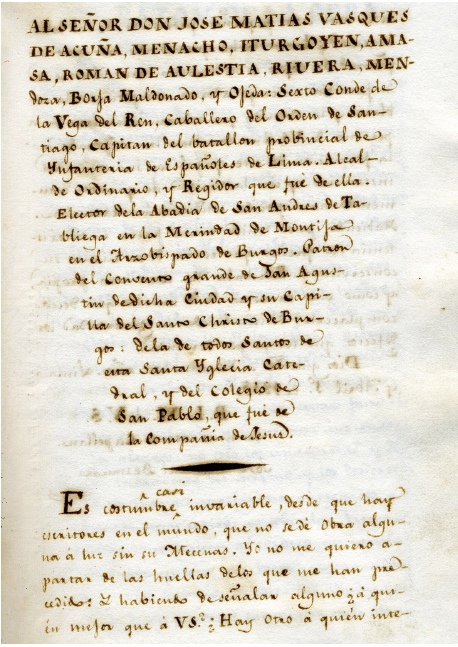 AL SEÑOR DON JOSE MATIAS VASQUES
DE ACUÑA, MENACHO, ITURGOYEN, AMA-
SA, ROMAN DE AULESTIA, RIVERA, MEN-
doza, Borja Maldonado, y Ojeda: Sexto Conde de
la Vega del Ren, Caballero del Orden de San-
tiago, Capitan del batallon provincial de
Ynfanteria de Españoles de Lima. Alcal-
de Ordinario, y Regidor que fué de ella.
Elector dela Abadia de San Andres de Ta-
bliega en la Merindad de Montija
en el Arzobispado de Burgos. Patron
del Convento grande de San Agus-
tin de dicha Ciudad y su Capi-
lla del Santo Christo de Bur-
gos: dela de todos Santos de
esta Santa Yglecia Cate-
dral, y del Colegio de
San Pablo, que fué de
la Compañia de Jesus.
casi
Es costumbre ^ invariable, desde que hay
escritores en el mundo, que no se dé Obra algu-
na á luz sin su Mecenas. Yo no me quiero a-
partar de las huellas delos que me han pre-
cedido: Y habiendo de señalar alguno ¿á qui-
én mejor que á VS.? ¿Hay otro á quién inte-